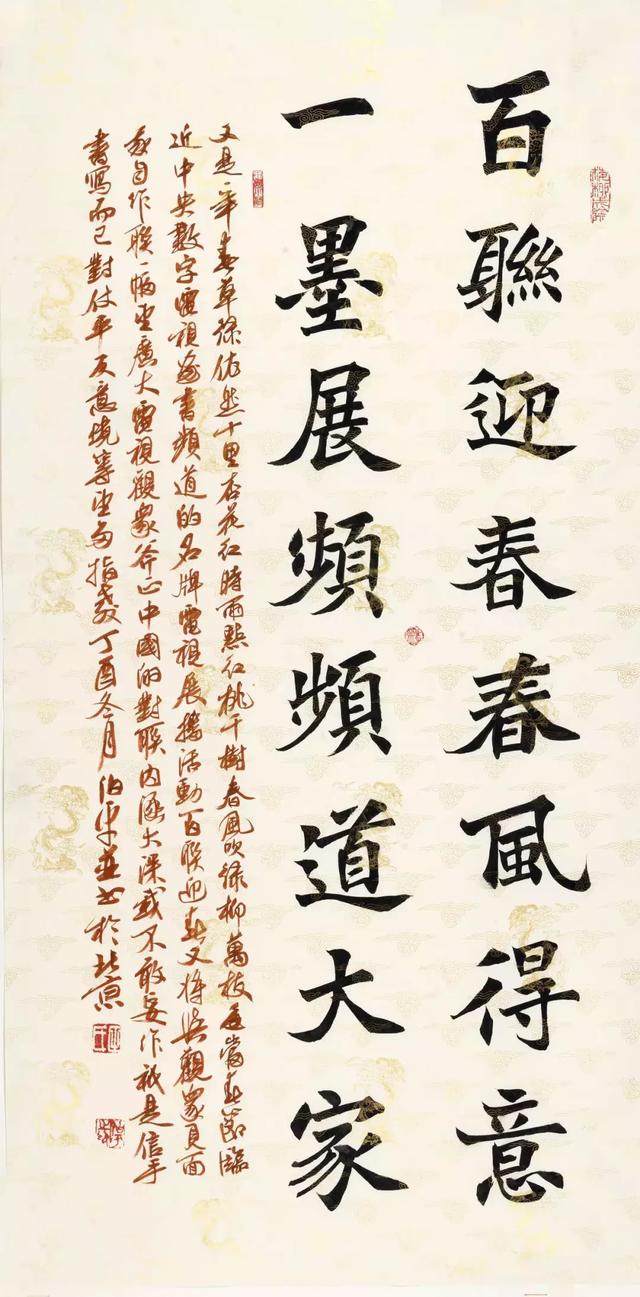 百聯迎春春風得意
一墨展頻頻道大家
又是一年春草綠依然十里杏花紅時雨點紅桃千樹春風吹綠柳萬枝每當春節臨
近中央數字電視書頻道的名牌電視展播活動百聯迎春又將與觀衆見面
我自作聯一幅望廣大電視觀衆斧正中國的對聯内涵太深我不敢妄作祇是信手
書寫而已對仗平仄意境等望多指教丁酉冬月伯平並書於北京